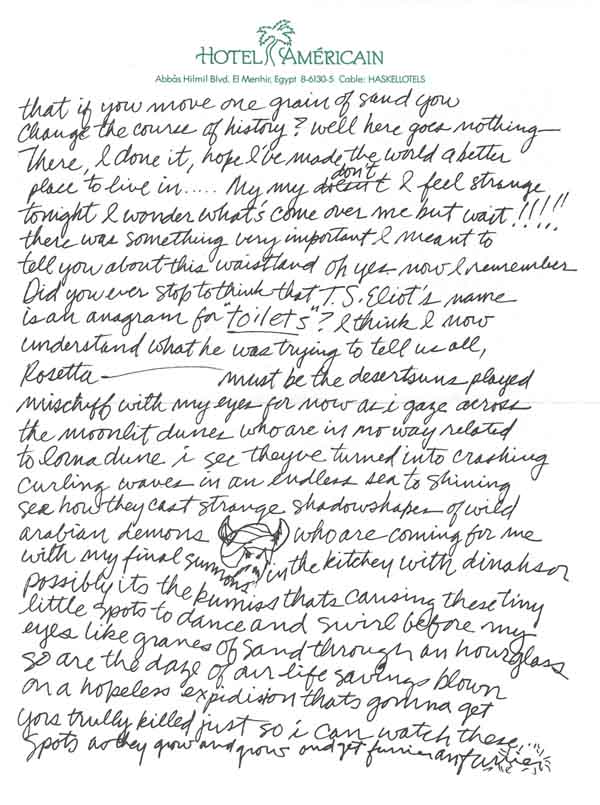 HOTEL AMÉRICAIN
Abbâs Hilmil Blvd. El Menhir, Egypt 8-6130-5 Cable: HASKELLOTELS
that if you move one grain of sand you
change the course of history? Well here goes nothing—
There, I done it, hope I've made the world a better
place to live in..... My my don't I feel strange
tonight I wonder what's come over me but wait!!!!!
there was something very important I meant to
tell you about this waistland oh yes now I remember
Did you ever stop to think that T.S. Eliot's name
is an anagram for "toilets"? I think I now
understand what he was trying to tell us all,
Rosetta — must be the desertsuns played
mischiff with my eyes for now as i gaze across
the moonlit dunes who are in no way related
to lorna dune i see theyve turned into crashing
curling waves in an endless sea to shining
sea how they cast strange shadowshapes of wild
arabian demons who are coming for me
with my final summons in the kitchey with dinahsor
possibly its the kumiss thats causing these tiny
little spots to dance and swirl before my
eyes like granes of sand through an hourglass
so are the daze of our life savings blown
on a hopeless expidision thats gonna get
yors trully killed just so i can watch these
spots as they grow and grow and get furrier an furrier